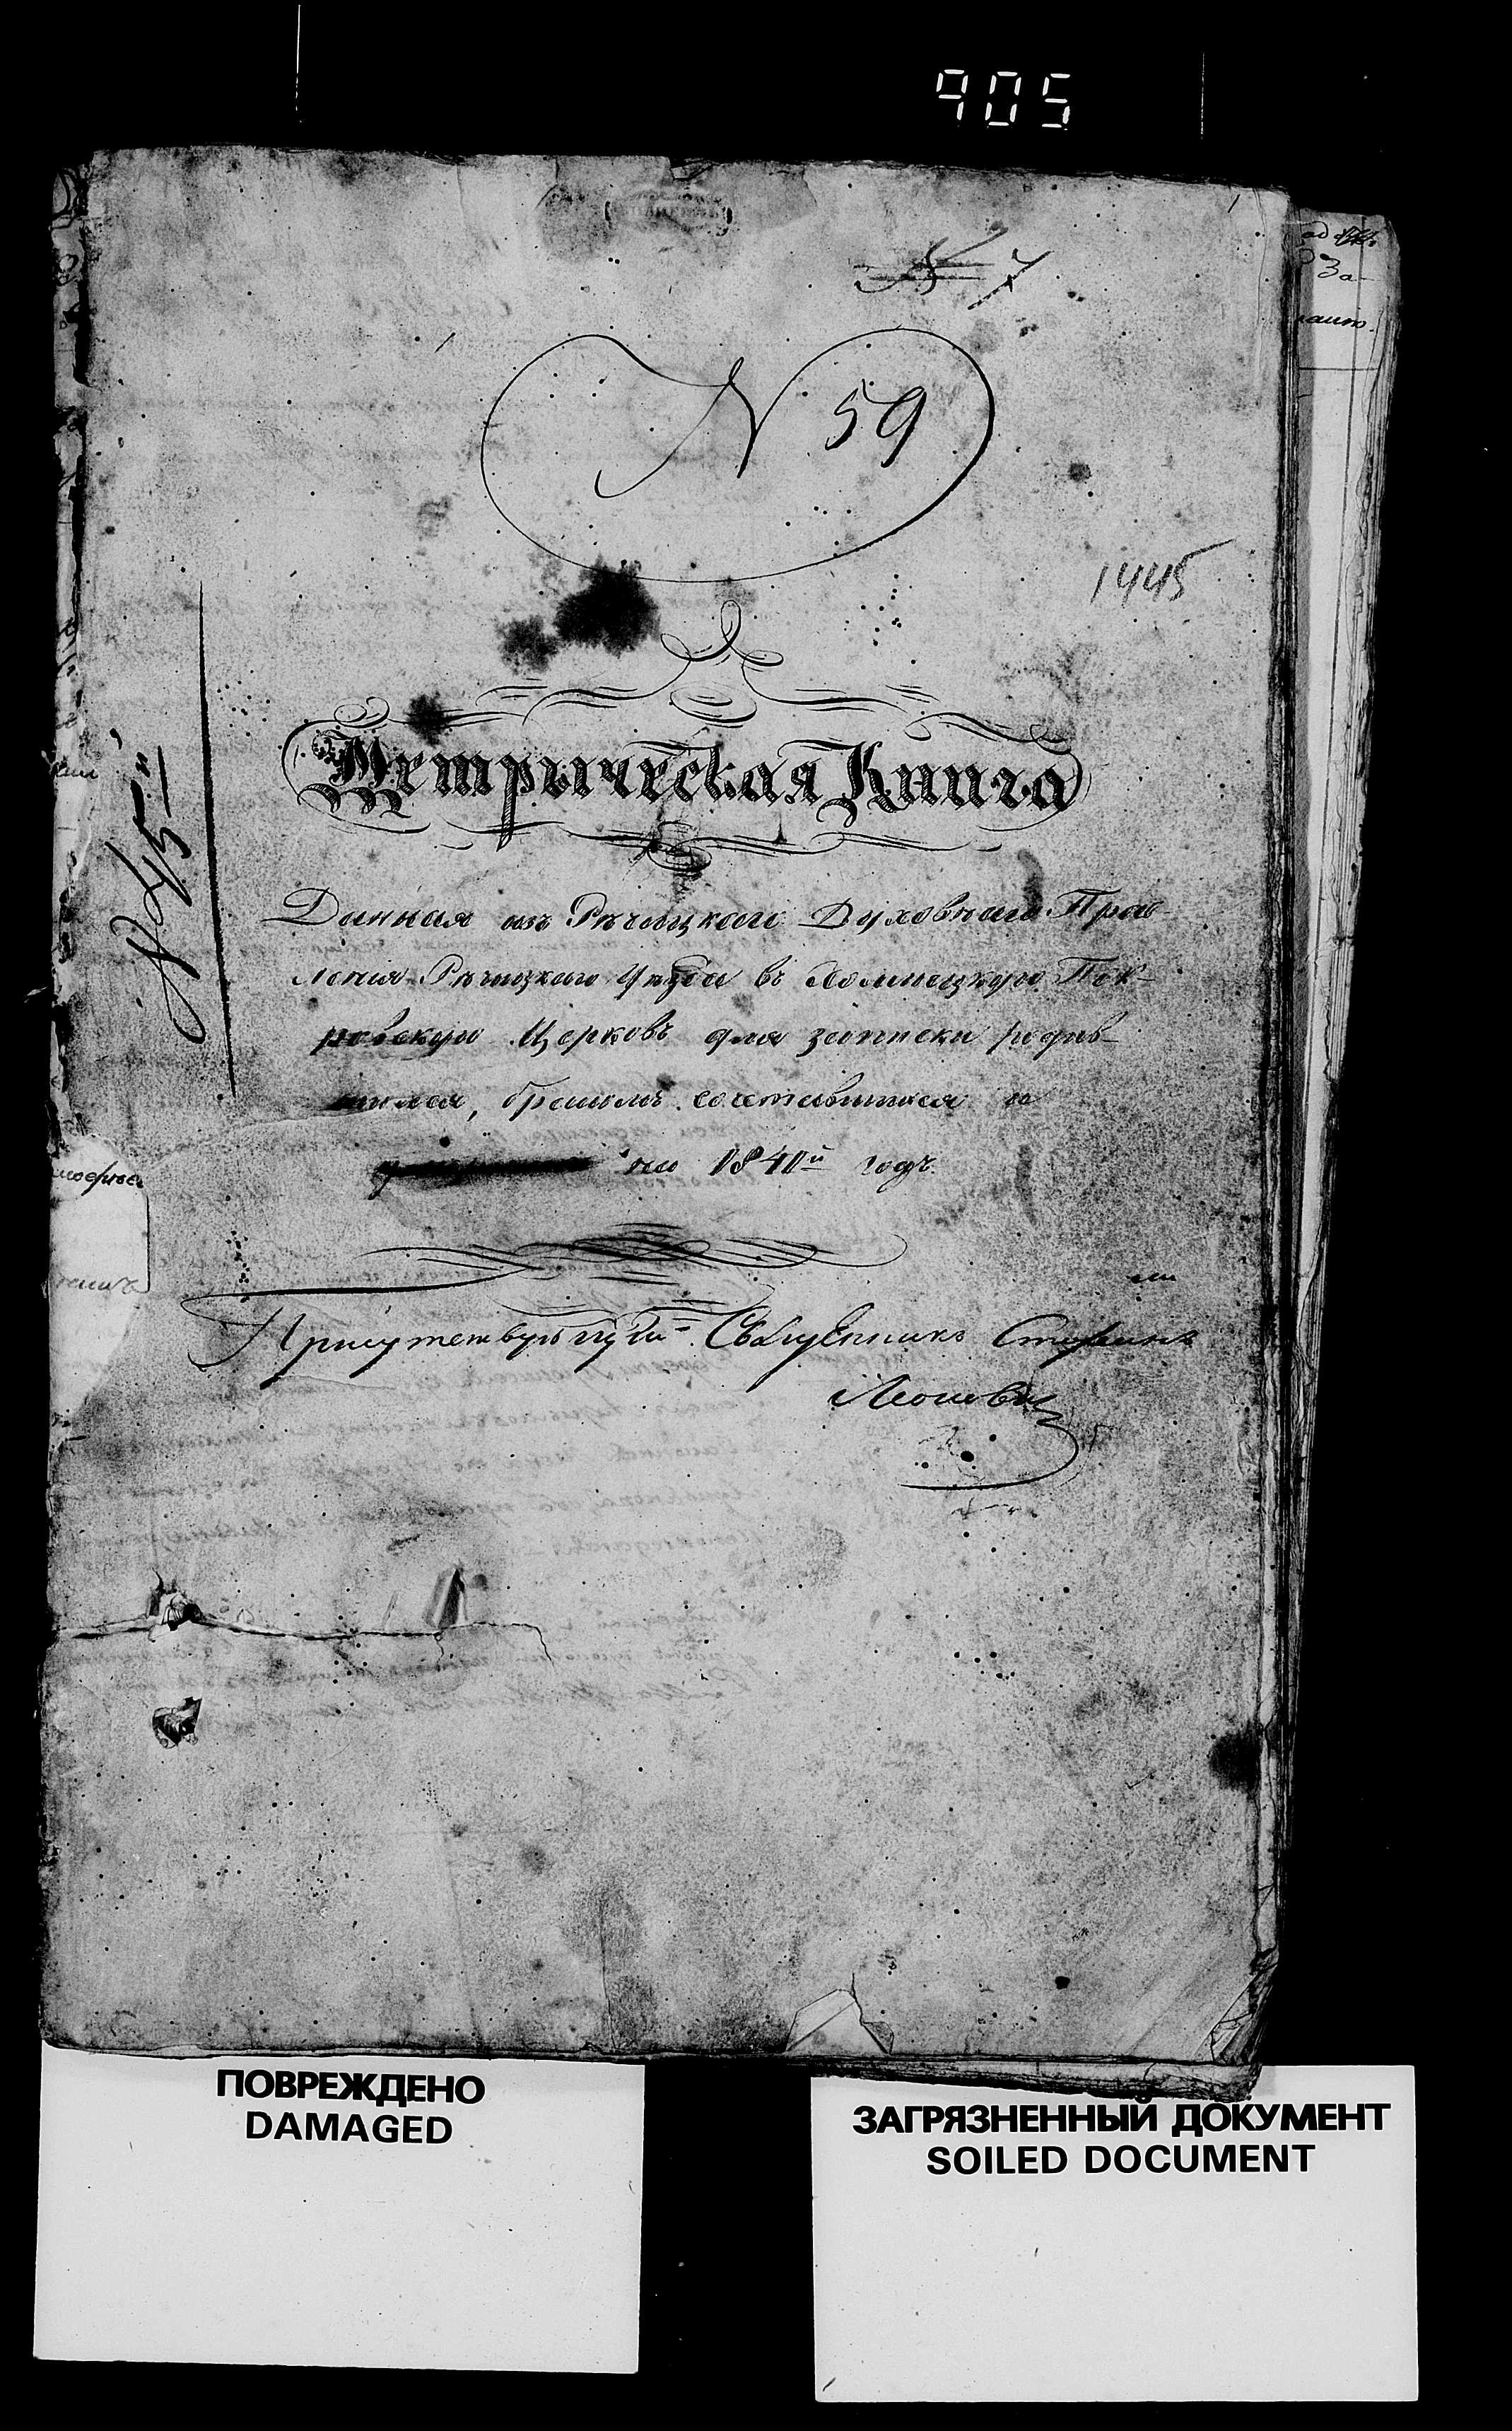 905
№ 7
N 59
1445
№ 45й
Метрическая Книга
Данная изъ Рѣчицкаго Духовнаго Прав-
ленія Рѣчицкаго Уѣзда въ Пок-
ровскую Церковь для записки родив-
шихся, бракомъ сочетавшихся и
на 1841й годъ.
Присутствующій Священникъ Стефанъ
ПОВРЕЖДЕНО
DAMAGED
ЗАГРЯЗНЕННЫЙ ДОКУМЕНТ
SOILED DOCUMENT